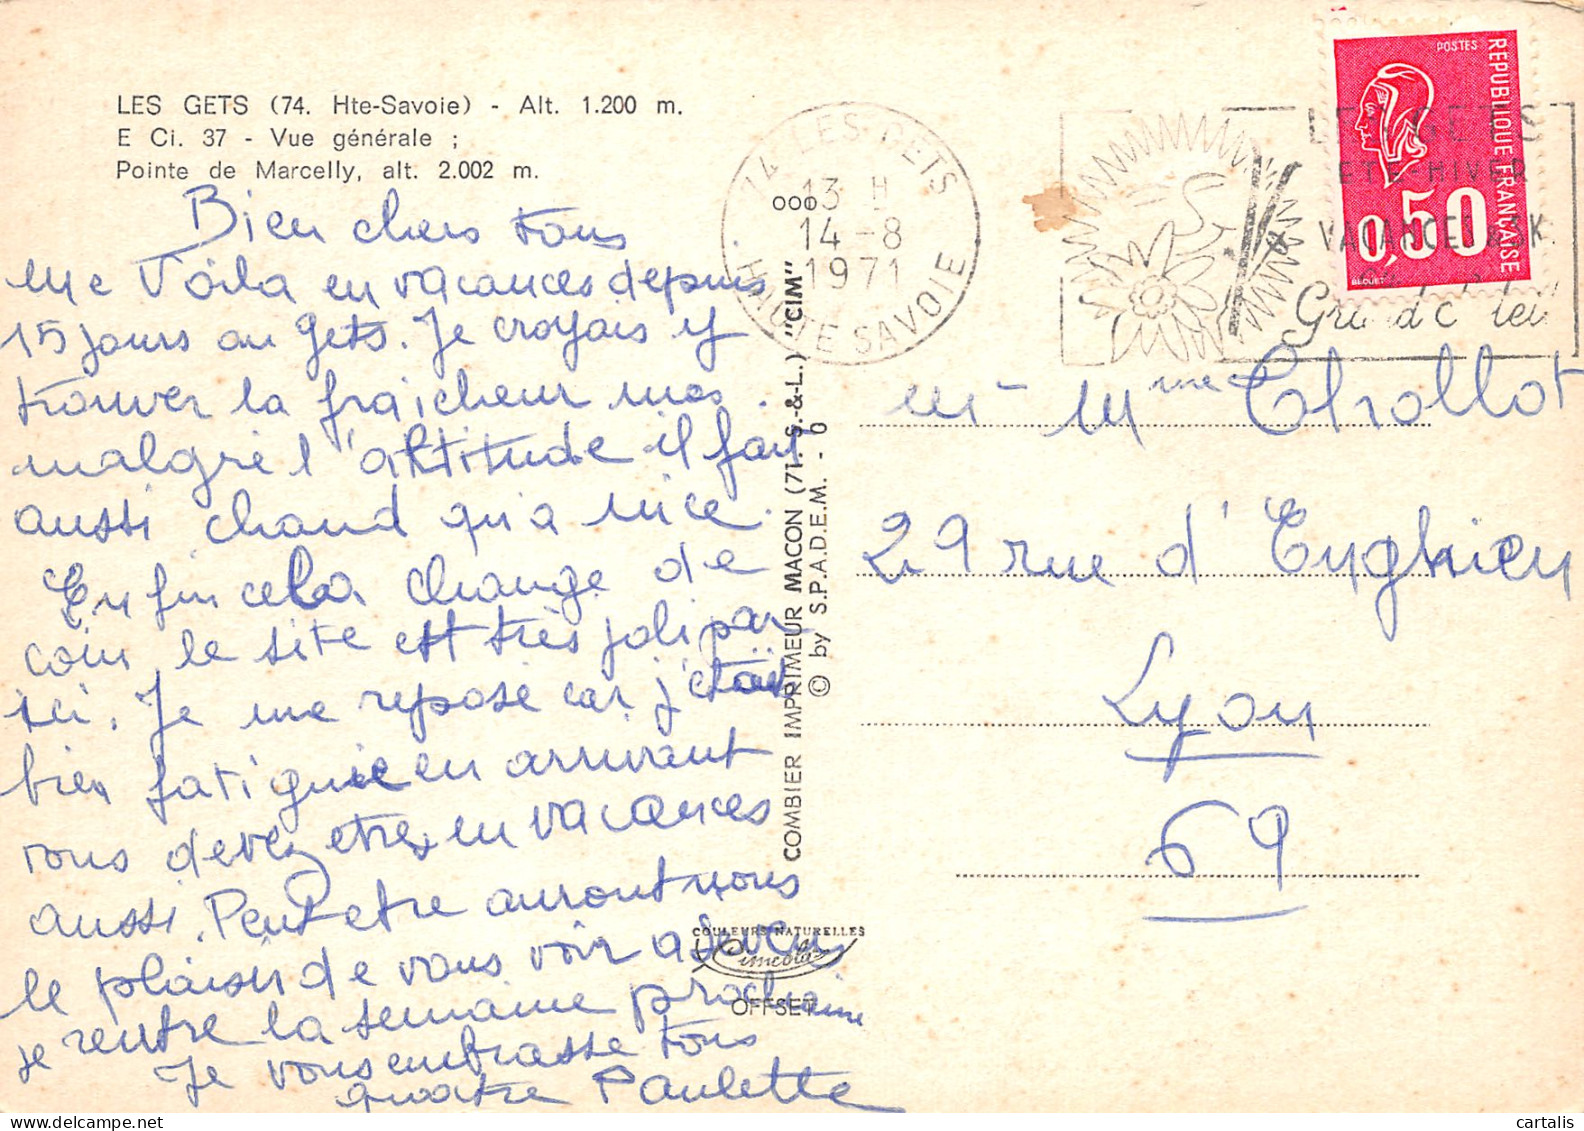 LES GETS (74. Hte-Savoie) - Alt. 1.200 m.
E Ci. 37 - Vue générale ;
Pointe de Marcelly, alt. 2.002 m.
Bien chers tous
me Voila en vacances depuis
15 jours au Gets. Je croyais y
trouver la fraicheur mais
malgré l'altitude il fait
aussi chaud qu'a nice.
Enfin cela change de
coin le site est très joli par
ici. Je me repose car j'étais
bien fatiguée en arrivant
vous devez etre en vacances
aussi. Peut etre auront nous
le plaisir de vous voir a
je rentre la semaine prochaine
Je vous embrasse tous
quatre Paulette
COULEURS NATURELLES
OFFSET
COMBIER IMPRIMEUR MACON (71. S.-&-L.) "CIM"
© by S.P.A.D.E.M. - 0
74 LES GETS
13 H
14-8
1971
HAUTE SAVOIE
LES GETS
ETE-HIVER
VACANCES & SKI
POSTES
REPUBLIQUE FRANÇAISE
0,50
BEQUET
Mr Mme Chollot
29 rue d'Enghien
Lyon
69
cartalis